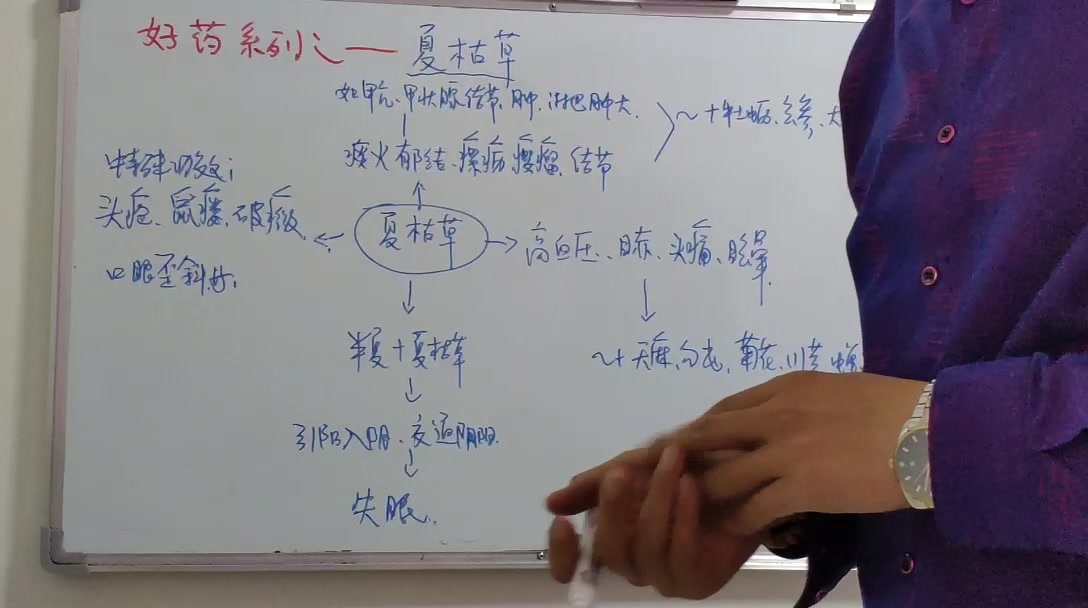 好药系列之一 夏枯草
如甲亢、甲状腺结节、肿、淋巴肿大.
～+牡蛎、玄参、
痰火郁结、瘰疬瘿瘤、结节
特殊功效;
头疮、鼠瘘、破癥、
口眼歪斜
夏枯草
高血压、目赤、头痛、眩晕
半夏+夏枯草
～+天麻、勾屯、菊花、川芎
引阳入阴、交通阴阳.
失眠.